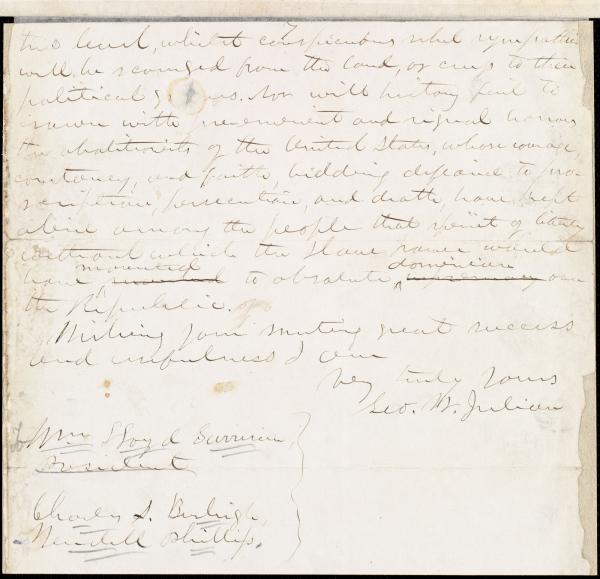 two level, whilst conspicuous rebel sympathies
will be scourged from the land, or creep to their
political graves. Nor will history fail to
crown with preeminent and signal honors
the abolitionists of the United States, whose courage,
constancy, and faith, bidding defiance to pro-
scription, persecution, and death, have kept
alive among the people that spirit of liberty
without which the slave power would
have mounted to absolute dominion over
the Republic.
Wishing your meeting great success
and usefulness I am
Very truly yours
Geo. W. Julian
To Wm Lloyd Garrison,
President
Charles S. Burleigh,
Wendell Phillips.